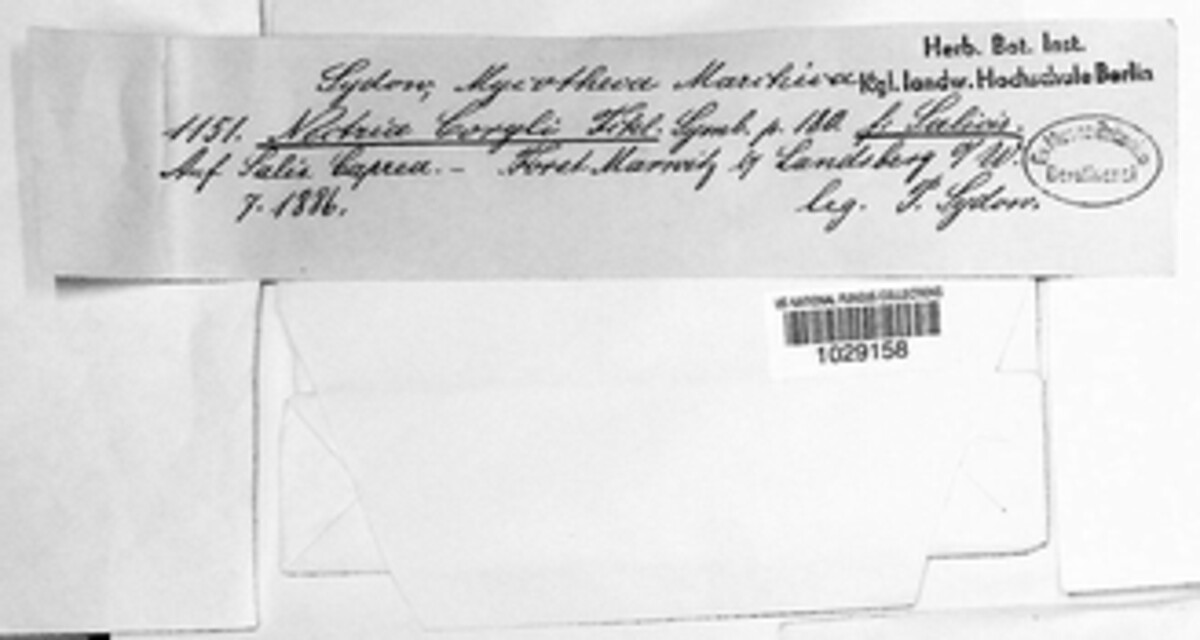 Herb. Bot. Inst.
Kgl. landw. Hochschule Berlin
Sydow, Mycotheca Marchica
1151. Nectria Coryli Fckl. Symb. p. 180. f. Salicis.
Auf Salix Caprea. – Forst Marwitz b/ Landsberg a/W.
7. 1886.
leg. P. Sydow.
US NATIONAL FUNGUS COLLECTIONS
1029158